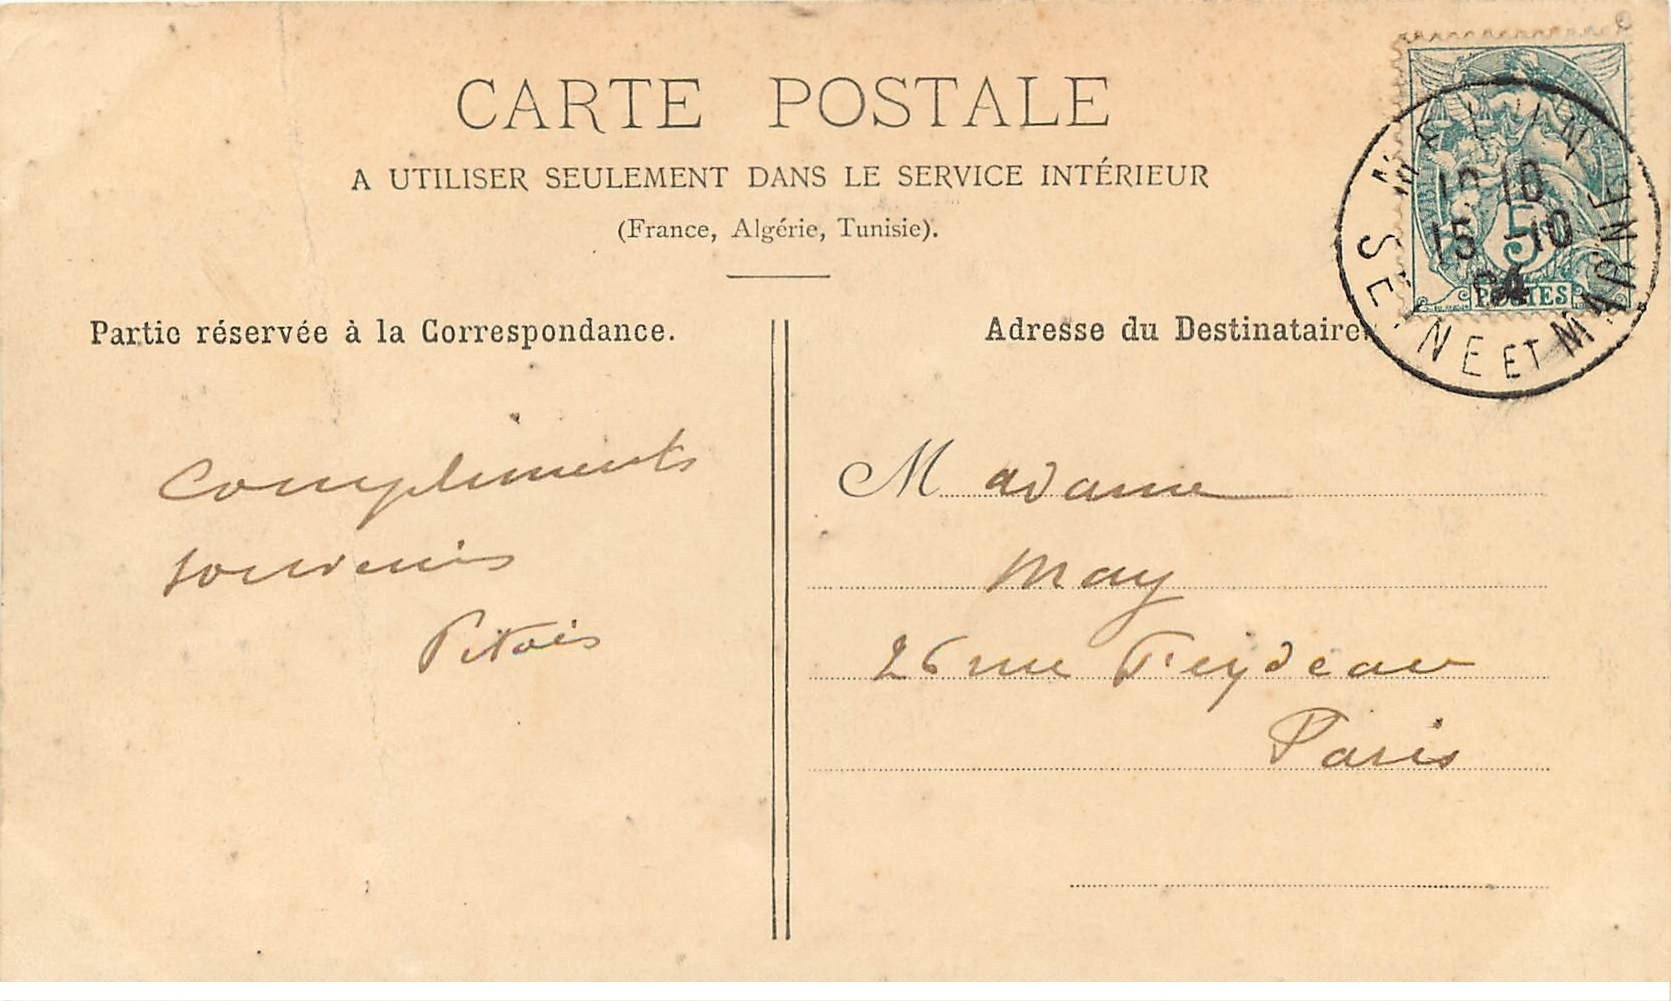 CARTE POSTALE
A UTILISER SEULEMENT DANS LE SERVICE INTÉRIEUR
(France, Algérie, Tunisie).
Partie réservée à la Correspondance.
Adresse du Destinataire
MELUN
10
15 -10
04
SEINE ET MARNE
5
POSTES
Compliments
souvenirs
Pitois
Madame
May
26 rue Feydeau
Paris